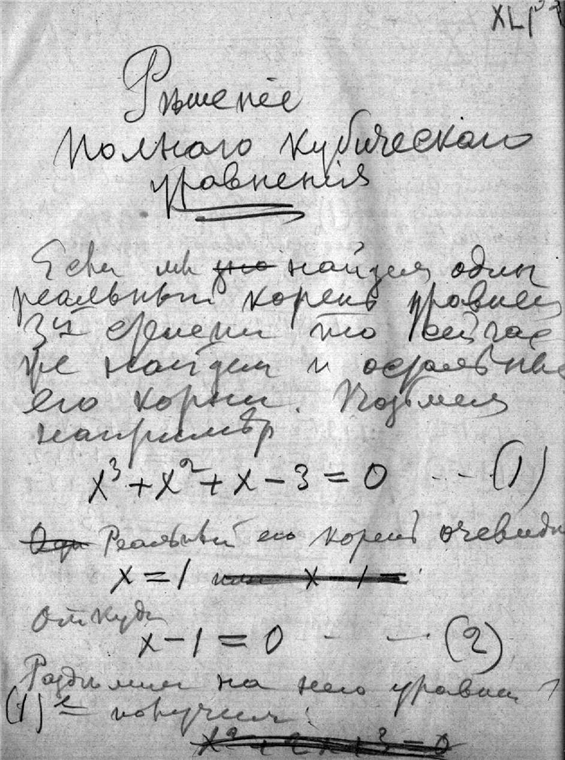 XLI
Рѣшеніе
полнаго кубическаго
уравненія
Если мы найдем один
реальный корень уравнен
3й степени то сейчас
же найдем и остальные
его корни. Возьмем
например
x³ + x² + x − 3 = 0 ... (1)
Реальный его корень очевидн
x = 1
откуда
x − 1 = 0 - - (2)
Раздѣлим на него уравнен
(1) е получим:
x² + 2x + 3 = 0